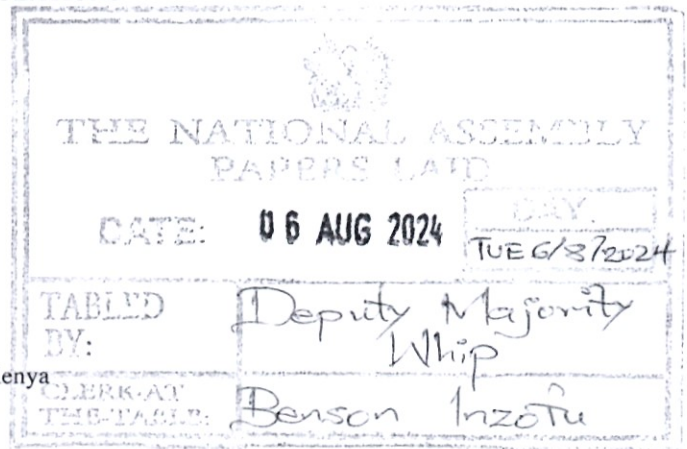 THE NATIONAL ASSEMBLY
PAPERS LAID
DATE: 06 AUG 2024
DAY.
TUE 6/8/2024
TABLED BY: Deputy Majority Whip
enya
CLERK-AT THE-TABLE: Benson Inzofu